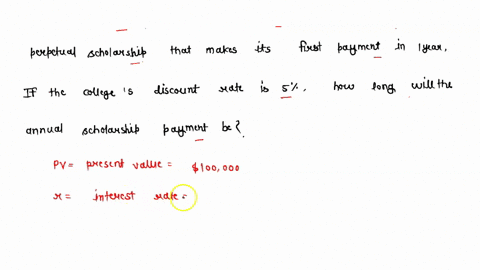 perpetual scholarship that makes its first payment in 1year.
If the college's discount rate is 5%. how long will the
annual scholarship payment be?
PV= present value = $100,000
r= interest rate=